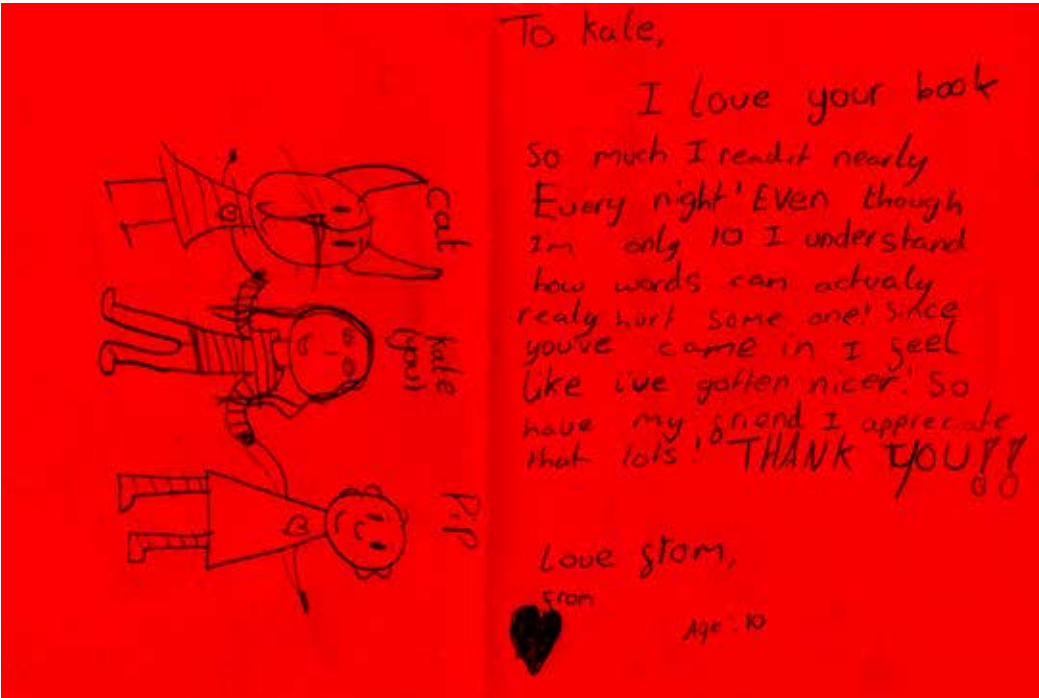 To kate,
I Love your book
So much I read it nearly
Every night! EVEN though
Im only 10 I understand
how words can actualy
realy hurt some one! Since
you've came in I feel
like i've gotten nicer! So
have my friend I appreciate
that lots! THANK YOU!!
Love from,
From
Age: 10
Cat
kate
(you)
Pip